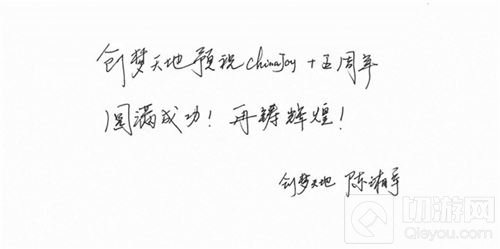 创梦天地预祝chinaJoy十五周年
圆满成功！再铸辉煌！
创梦天地 陈湘宇
切游网
Qieyou.com